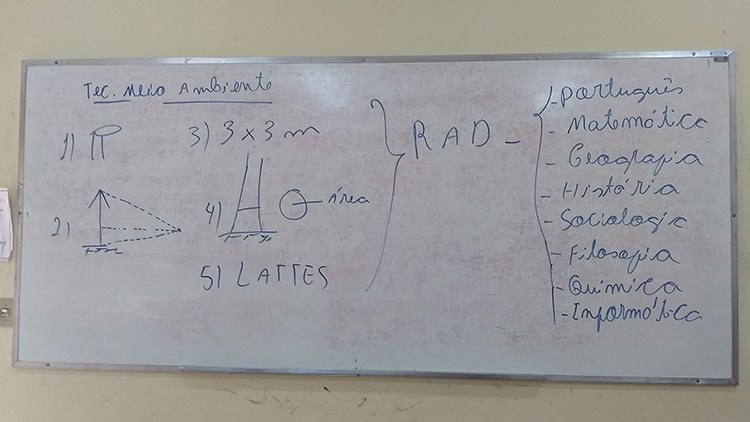 Tec. Meio Ambiente
1) π
2)
3) 3 x 3 m
4) Área
5) LATTES
RAD -
- Português
- Matemática
- Geografia
- História
- Sociologia
- Filosofia
- Química
- Informática